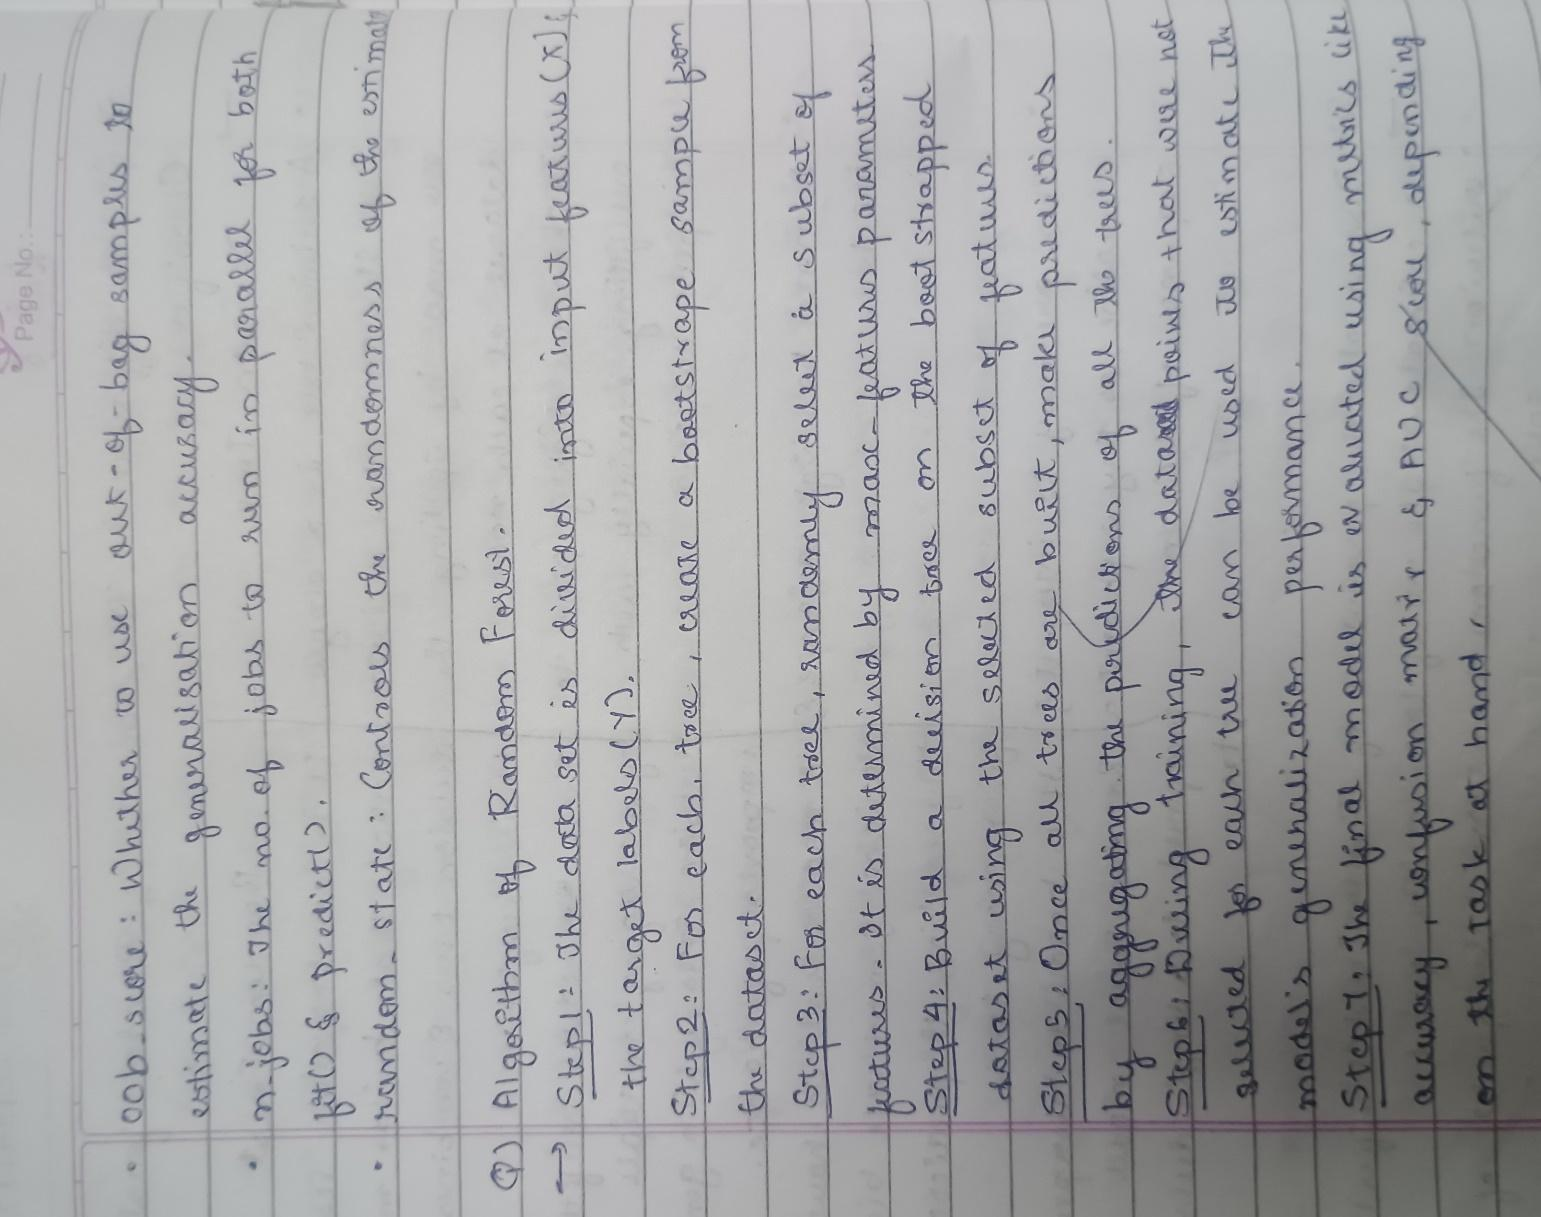 Page No.:
• oob_score : Whether to use out-of-bag samples to
estimate the generalisation accuracy.
• n-jobs: The no. of jobs to run in parallel for both
fit() & predict().
• random_state : Controls the randomness of the estimato
Q) Algorithm of Random Forest.
→ Step1: The data set is divided into input features (X) &
the target labels (Y).
Step2: For each, tree, create a bootstrape sample from
the dataset.
Step3: For each tree, randomly select a subset of
features. It is determined by max-features parameters
Step4: Build a decision tree on the bootstrapped
dataset using the selected subset of features.
Step5: Once all trees are built, make predictions
by aggregating the predictions of all the trees.
Step6: During training, the data points that were not
selected for each tree can be used to estimate the
model's generalization performance.
Step7: The final model is evaluated using metrics like
accuracy, confusion & AUC score, depending
on the task at hand.